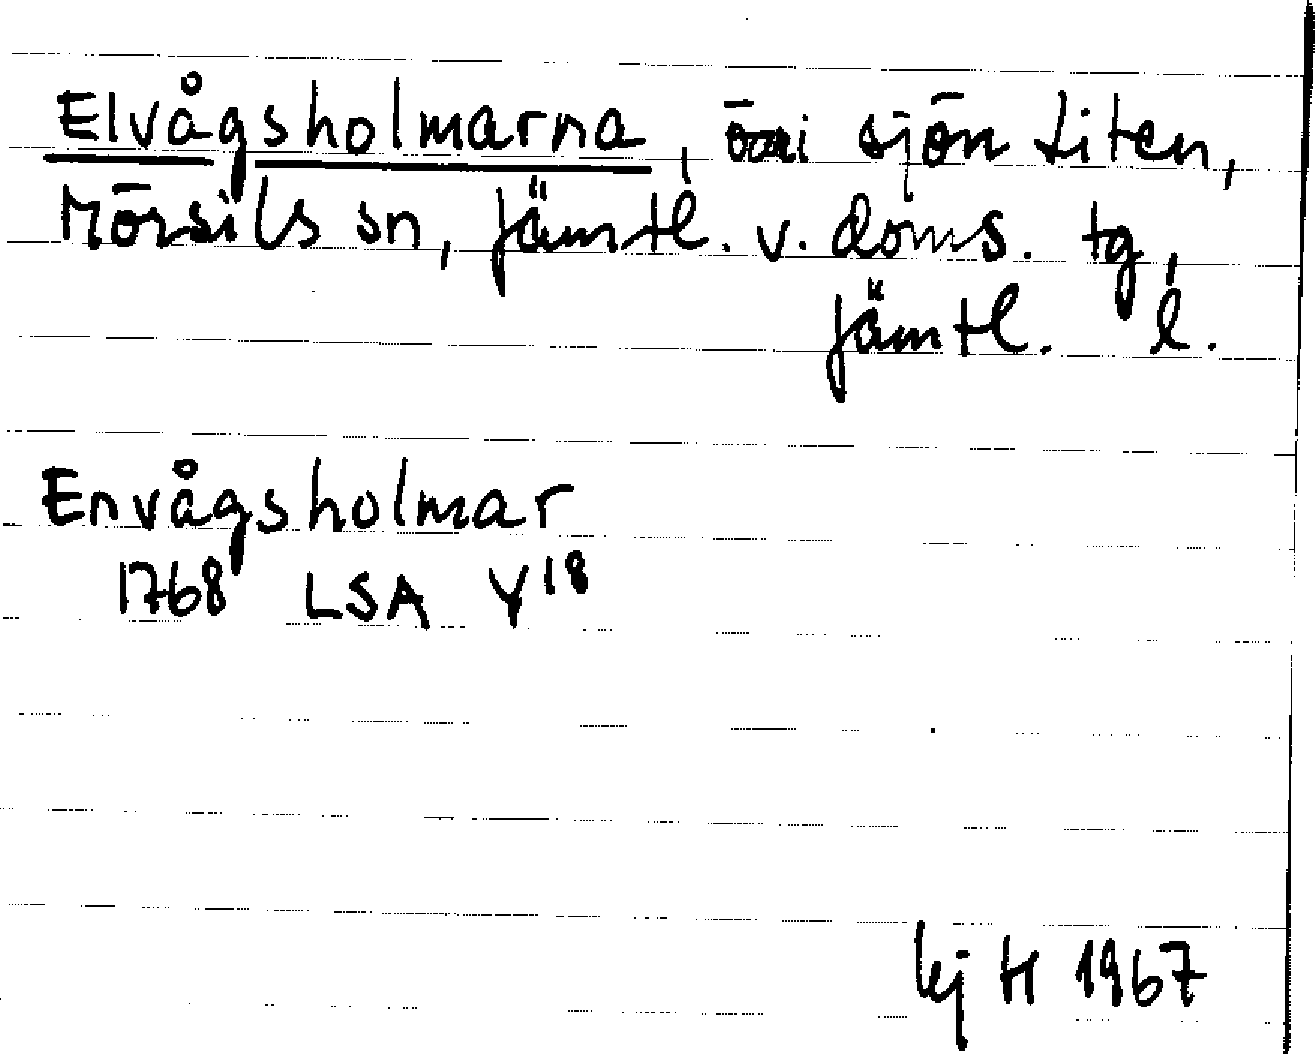 Elvågsholmarna, öar i sjön Liten,
Mörsils sn, Jämtl. v. doms. tg,
Jämtl. l.
Envågsholmar
1768 LSA Y18
kj H 1967